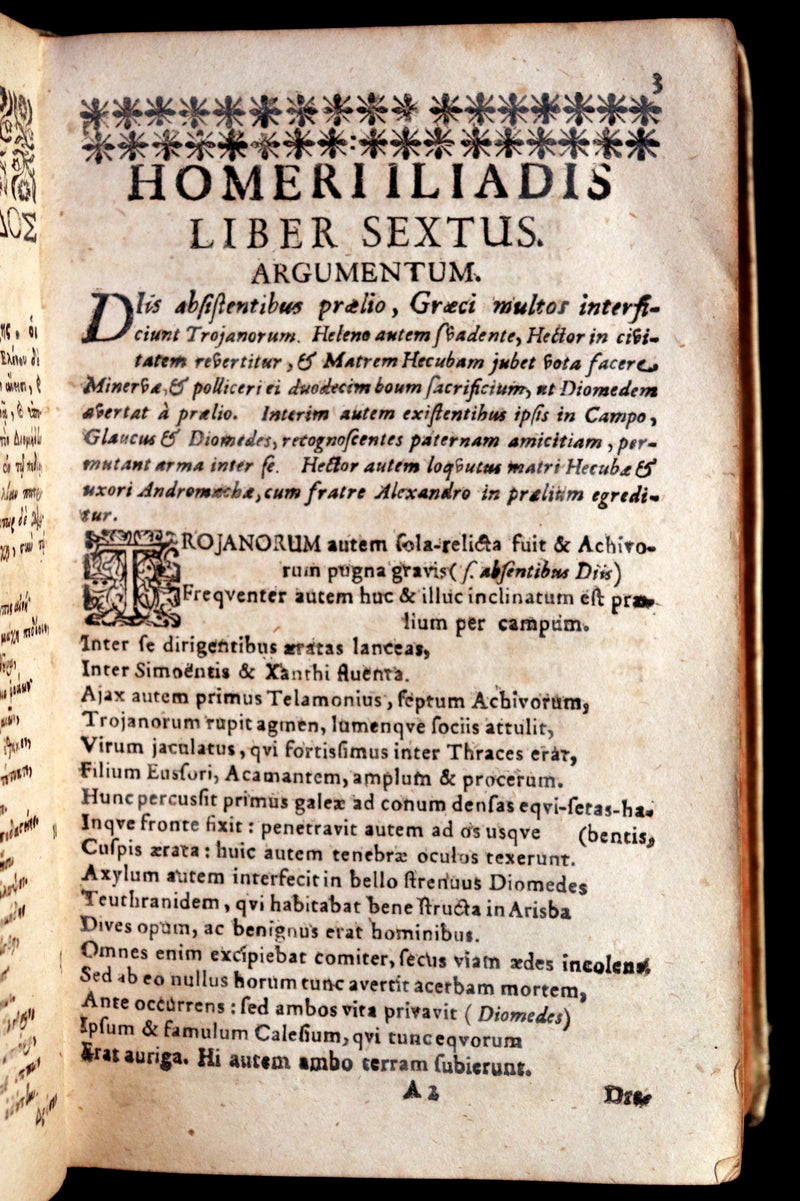 3
HOMERI ILIADIS
LIBER SEXTUS.
ARGUMENTUM.
DIis absistentibus prælio, Græci multos interfi-
ciunt Trojanorum. Heleno autem svadente, Hector in civi-
tatem revertitur, & Matrem Hecubam jubet vota facere
Minervæ, & polliceri ei duodecim boum sacrificium, ut Diomedem
avertat à prælio. Interim autem existentibus ipsis in Campo,
Glaucus & Diomedes, recognoscentes paternam amicitiam, per-
mutant arma inter se. Hector autem loqvutus matri Hecubæ &
uxori Andromachæ, cum fratre Alexandro in prælium egredi-
tur.
TROJANORUM autem sola-relicta fuit & Achivo-
rum pugna gravis (s. absentibus Diis)
Freqventer autem huc & illuc inclinatum est præ-
lium per campum.
Inter se dirigentibus æratas lanceas,
Inter Simoëntis & Xanthi fluenta.
Ajax autem primus Telamonius, septum Achivorum,
Trojanorum rupit agmen, lumenqve sociis attulit,
Virum jaculatus, qvi fortissimus inter Thraces erat,
Filium Eussori, Acamantem, amplum & procerum.
Hunc percussit primus galeæ ad conum densas eqvi-setas-ha-
Inqve fronte fixit: penetravit autem ad os usqve (bentis,
Cuspis ærata: huic autem tenebræ oculos texerunt.
Axylum autem interfecit in bello strenuus Diomedes
Teuthranidem, qvi habitabat bene structa in Arisba
Dives opum, ac benignus erat hominibus.
Omnes enim excipiebat comiter, secus viam ædes incolens
Sed ab eo nullus horum tunc avertit acerbam mortem,
Ante occurrens: sed ambos vita privavit (Diomedes)
Ipsum & famulum Calesium, qvi tunc eqvorum
Erat auriga. Hi autem ambo terram subierunt.
A 2